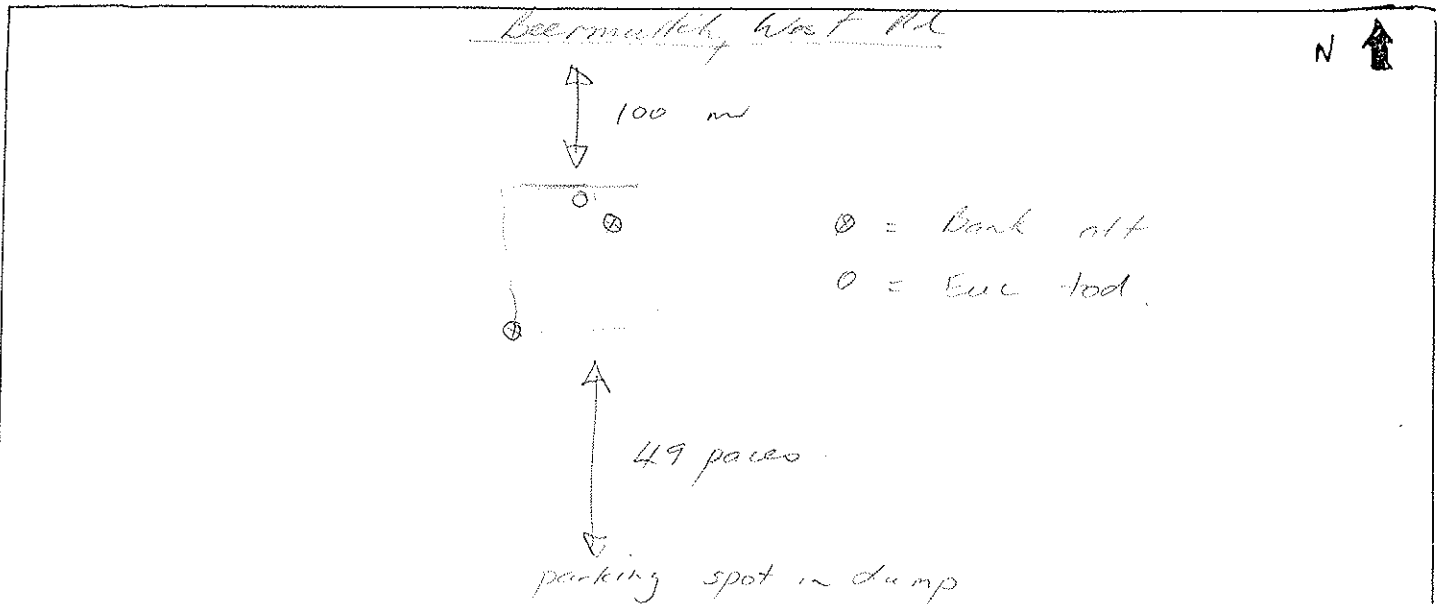 Beermullah West Rd
N
100 m
⊗ = Bank att
O = Euc tod.
49 paces
parking spot in dump